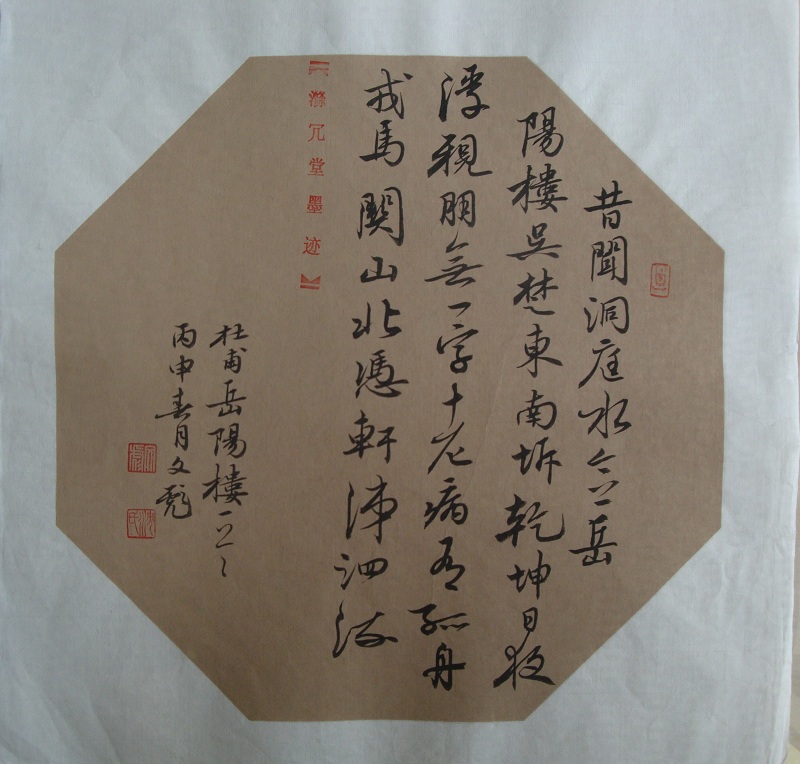 昔聞洞庭水今上岳
陽樓吳楚東南坼乾坤日夜
浮親朋無一字老病有孤舟
戎馬關山北憑軒涕泗流
滌冗堂墨迹
杜甫岳陽樓
丙申春月文彪